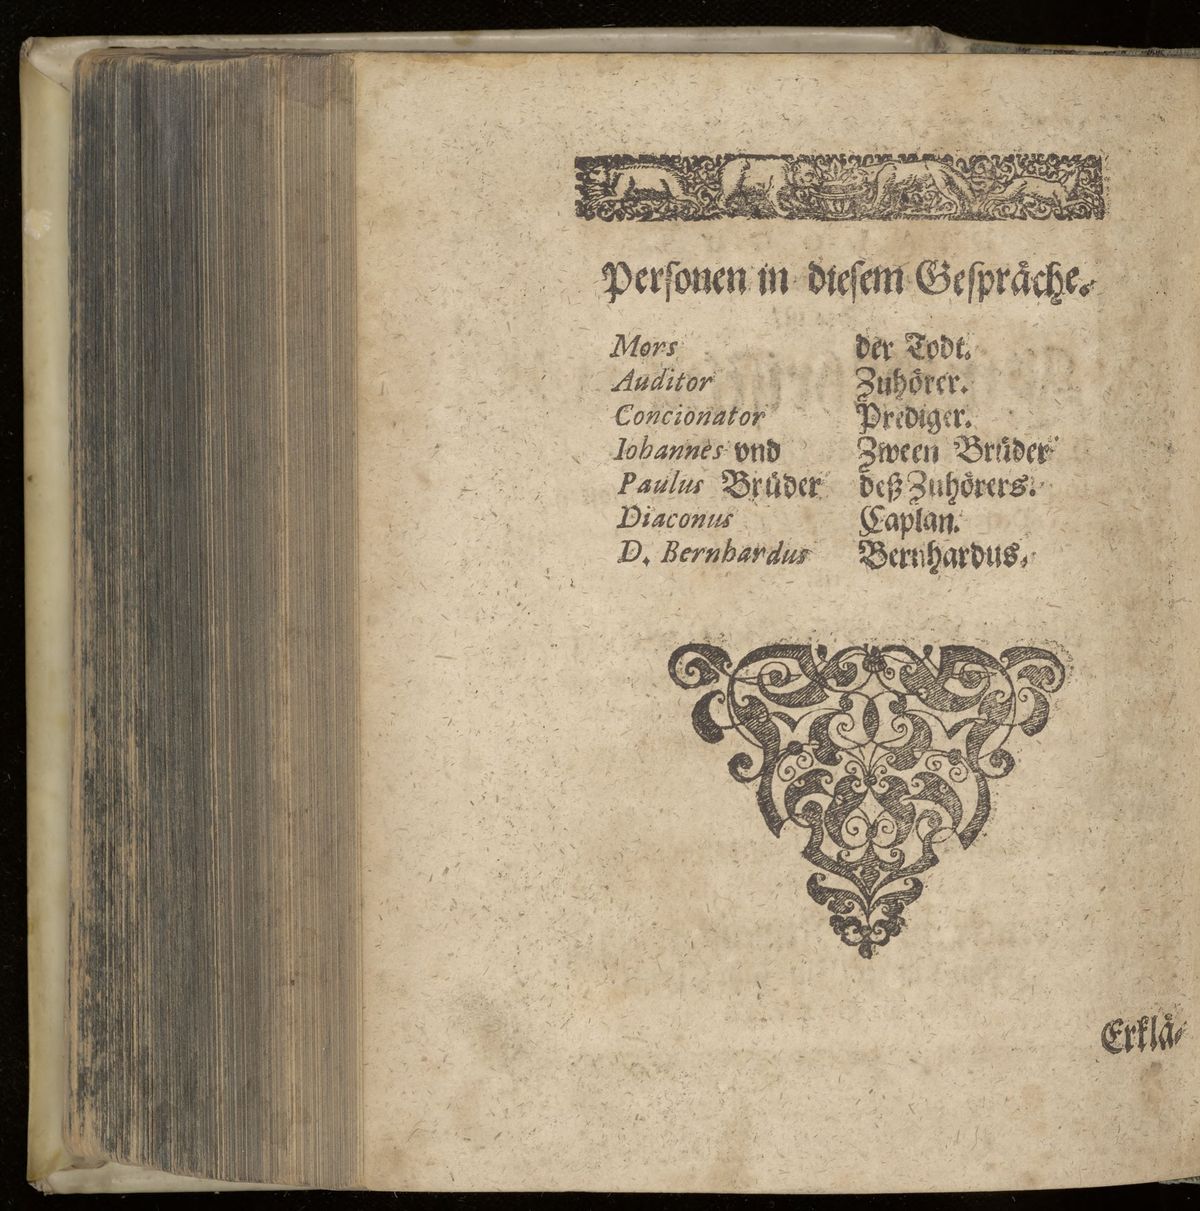 Perſonen in dieſem Geſpräche.
Mors der Todt.
Auditor Zuhörer.
Concionator Prediger.
Iohannes vnd Zween Brüder
Paulus Brüder deß Zuhörers.
Diaconus Caplan.
D. Bernhardus Bernhardus.
Erklä-